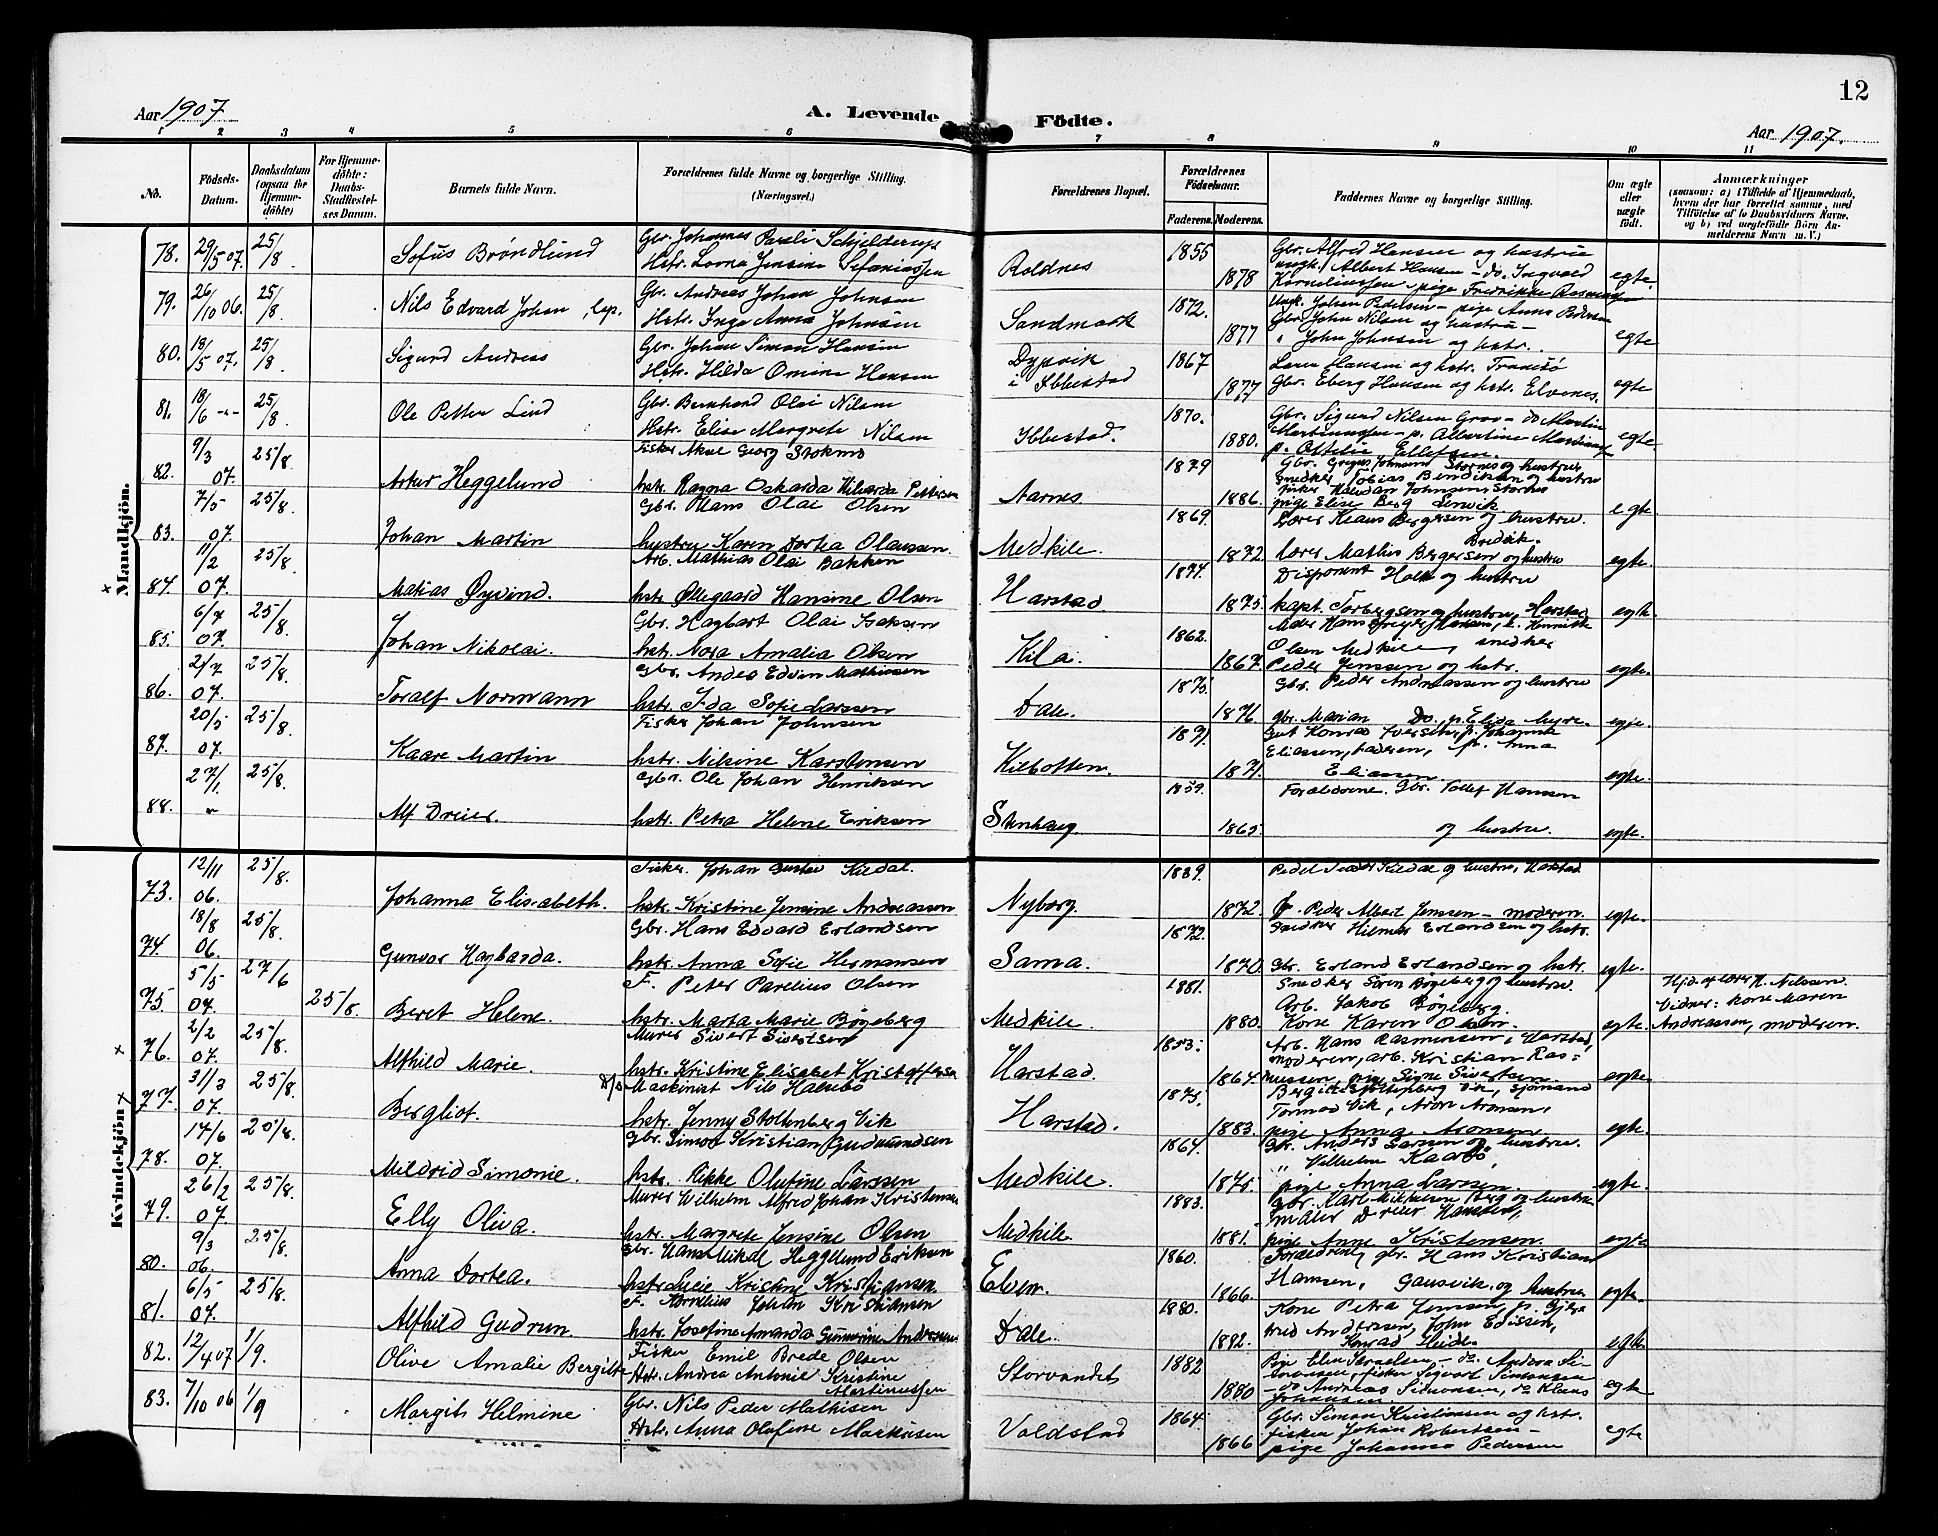 12
Aar 1907
A. Levende Födte.
Aar 1907.
1 2 3 4 5 6 7 8 9 10 11
No.
Födsels-Datum.
Daabsdatum (ogsaa for Hjemmedöbte)
For Hjemmedöbte: Daabs-Stadfæstelses Datum.
Barnets fulde Navn.
Forældrenes fulde Navne og borgerlige Stilling. (Næringsvei.)
Forældrenes Bopæl.
Forældrenes Födselsaar.
Faderens. Moderens.
Faddernes Navne og borgerlige Stilling.
Om ægte eller uægte födt.
Anmærkninger
(saasom: a) i Tilfælde af Hjemmedaab, hvem der har forrettet samme, med Tilföielse af to Daabsvidners Navne, og b) ved uægtefödte Börn Anmelderens Navn m. V.)
Mandkjön.
78. 29/5 07. 25/8. Sofus Bröndlund
Gbr. Johannes Pareli Schjelderup
Hstr. Lovna Jensine Stefaniassen
Roldnes 1855 1878
Gbr. Alfred Hansen og hustru
ungk. Albert Hansen - do. Ingvald
Korneliussen - pige Fredrikke Rasmussen
egte.
79. 26/10 06. 25/8. Nils Edvard Johan
Gbr. Andreas Johan Johnsen
Hstr. Inga Anna Johnsen
Sandmark 1872. 1877
Ungk. Johan Pedersen - pige Anna Pedersen
Gbr. John Nilsen og hustru -
" John Johnsen og hstr.
egte
80. 18/5 07. 25/8. Sigurd Andreas
Gbr. Johan Simon Hansen
Hstr. Hilda Omine Hansen
Dypvik i Ibbestad 1867 1877
Lars Hansen og hstr. Tranesö
Gbr. Eberg Hansen og hstr. Elvenes.
egte
81. 18/6 -"- 25/8. Ole Petter Lind
Gbr. Bernhard Olai Nilsen
Hstr. Elise Margrete Nilsen
Ibbestad. 1870. 1880.
Gbr. Sigurd Nilsen Grov - do Martin
Martinussen - p. Albertine Martinussen
p. Ottelie Ellefsen.
egte.
82. 9/3 07. 25/8. Artur Heggelund
Fisker Aksel Georg Stoknes
hstr. Ragna Oskarda Hilvarda Pettersen
Aarnes 1879 1886.
Gbr. Gregus Johnsend Stornes og hustru
snedker Tobias Bendiksen og hustru
fisker Halvdan Johnsen, Stornes
pige Elise Berg Lenvik.
egte.
83. 7/5 07. 25/8. Johan Martin
Gbr. Hans Olai Olsen
hustru Karen Dortea Olaussen.
Medkile. 1869. 1872.
Lærer Klaus Bergersen og hustru.
Bredvik.
lærer Mathis Bergersen og hustru
egte.
84. 11/2 07. 25/8. Matias Øyvind.
Arb. Mathias Olai Bakken
hstr Ollegaard Hansine Olsen
Harstad 1874. 1875.
Disponent Holm og hustru
kapt. Torbergsen og hustru, Harstad
egte.
85. 6/7 07. 25/8. Johan Nikolai.
Gbr. Hagbart Olai Isaksen
hstr. Nora Amalia Olsen
Kila. 1862. 1867.
Olsen Medkile, snedker
Peder Jenssen og hstr.
egte.
86. 2/7 07. 25/8. Toralf Normann
Gbr. Andes Edvin Mathissen
hstr. Ida Sofie Larssen
Dale. 1875. 1876.
Gbr. Peder Andreassen og hustru
gbr. Marian Do. p. Elida Myre.
egte.
87. 20/5 07. 25/8. Kaare Martin
Fisker Johan Johnsen
hstr. Nilsine Karstensen
Kilbotten. 1871. 1871.
Gut Konrad Iversen, p. Johanna
Eliassen, faderen, p. Anna
Eliassen.
egte.
88. 27/1. " 25/8. Alf Dreier.
Gbr. Ole Johan Henriksen
hstr. Petra Helene Eriksen
Stenhaug 1859. 1865.
Forældrene. Gbr. Tollef Hansen
og hustru.
egte.
Kvindekjön.
73. 12/11 06. 25/8. Johanna Elisabeth.
Fisker. Johan Gustav Kildal.
hstr. Kristine Jensine Andreassen
Nyborg. 1839. 1872.
Kildal og hustru, Harstad
Peder Albert Jenssen - moderen.
egte.
74. 18/8 06. 25/8. Gunvor Hagbarda.
Gbr. Hans Edvard Erlandsen
hstr. Anna Sofie Hermansen
Sama. 1872. 1870.
Snedker Hilmar Erlandsen og hstr.
Gbr. Erland Erlandsen og hstr.
egte.
75. 5/5 07. 27/6 25/8. Beret Helene.
F. Peter Parelius Olsen
hstr. Marta Marie Bögeberg
Medkile. 1881. 1880.
Snedker Sören Bögeberg og hustru.
Arb. Jakob Bögeberg.
Kone Karen Olsen.
egte.
Hjd. af lærer N. Nilssen.
Vidner: kone Maren
Andreassen, moderen.
76. 2/2 07. 25/8. Alfhild Marie.
Murer Sivert Sivertsen
hstr. Kristine Elisabet Kristoffersen
Harstad. 1853. 1864.
Arb. Hans Rasmussen, Harstad,
moderen, arb. Kristian Ras=
mussen, pige Signe Sivertsen
egte.
77. 31/3 07. 25/8. Bergliot.
D/s Maskinist Nils Halsebö
hstr. Jenny Stoltenberg Vik
Harstad. 1875. 1883.
Bergitte Stoltenberg Vik, sjömand
Tormod Vik, Aron Aronsen,
pige Anna Aronsen
egte.
78. 17/6 07. 25/8. Mildrid Simonie.
Gbr. Simon Kristian Gudmundsen
hstr. Rikke Olufine Larssen
Medkile. 1864. 1875.
Gbr. Anders Larssen og hustru.
" Vilhelm Kaarbö,
pige Anna Larssen.
egte.
79. 26/2 07. 25/8. Elly Oliva.
Murer Wilhelm Alfred Johan Kristensen
hstr. Margrete Jensine Olsen
Medkile. 1883. 1881.
Gbr. Karl Mikkelsen Berg og hustru
maler Dreier Hansen,
pige Anne Kristensen.
egte
80. 9/3 06. 25/8. Anna Dortea.
Gbr. Hans Mikal Heggelund Eriksen
hstr. Lucie Kristine Kristiansen
Elven. 1860. 1866.
Forældrene, gbr. Hans Kristian
Hansen, Gausvik, og hustru
egte.
81. 6/5 07. 25/8. Alfhild Gudrun.
F. Kornelius Johan Kristiansen
hstr. Josefine Amanda Gunnerine Andersen
Dale. 1880. 1882.
Kone Petra Jensen, p. Gjer-
trud Andersen, John Edissen,
Konrad Heide.
egte
82. 12/4 07 1/9. Olive Amalie Bergitte
Fisker Emil Brede Olsen
Hstr. Andrea Antonie Kristine
Martinussen
Storvandet 1882 1880
Pige Elen Israelsen - do. Andrea Si-
monsen, fisker Sigvart Simonsen
- do Andreas Simonsen, do Klaus
Johansen
egte
83. 7/10 06 1/9 Margit Helmine
Gbr. Nils Peder Mathisen
Hstr. Anna Olufine Markusen
Voldstad 1864. 1866
Gbr. Simon Kristiansen og hst.
fisker Johan Robertsen -
pige Johanna Pedersen
egte